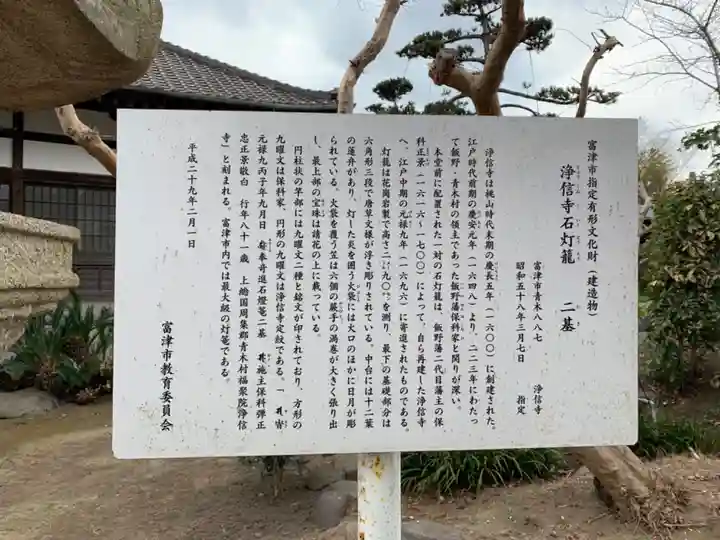 富津市指定有形文化財（建造物）
浄信寺石灯籠　二基
富津市青木八八七　浄信寺
昭和五十八年三月七日　指定
浄信寺は桃山時代末期の慶長五年（一六〇〇）に創建された。
江戸時代前期の慶安元年（一六四八）より、二二三年にわたっ
て飯野・青木村の領主であった飯野藩保科家と関りが深い。
本堂前に配置された一対の石灯籠は、飯野藩二代目藩主の保
科正景（一六一六〜一七〇〇）によって、自ら再建した浄信寺
へ、江戸中期の元禄九年（一六九六）に寄進されたものである。
灯籠は花崗岩製で高さ二・九〇ｍを測り、最下の基礎部分は
六角形三段で唐草文様が浮き彫りされている。中台には十二葉
の蓮弁があり、灯した炎を囲う火袋には火口のほかに日月が彫
られている。火袋を覆う笠は六個の蕨手の渦巻が大きく張り出
し、最上部の宝珠は請花の上に載っている。
円柱状の竿部には九曜文二種と銘文が印されており、方形の
九曜文は保科家、円形の九曜文は浄信寺定紋である。「　旹
元禄九丙子年九月日　奉寄進石燈篭二基　施主保科弾正
忠正景敬白　行年八十一歳　上総国周集郡青木村福聚院浄信
寺」と刻まれる。富津市内では最大級の灯篭である。
平成二十九年二月一日
富津市教育委員会